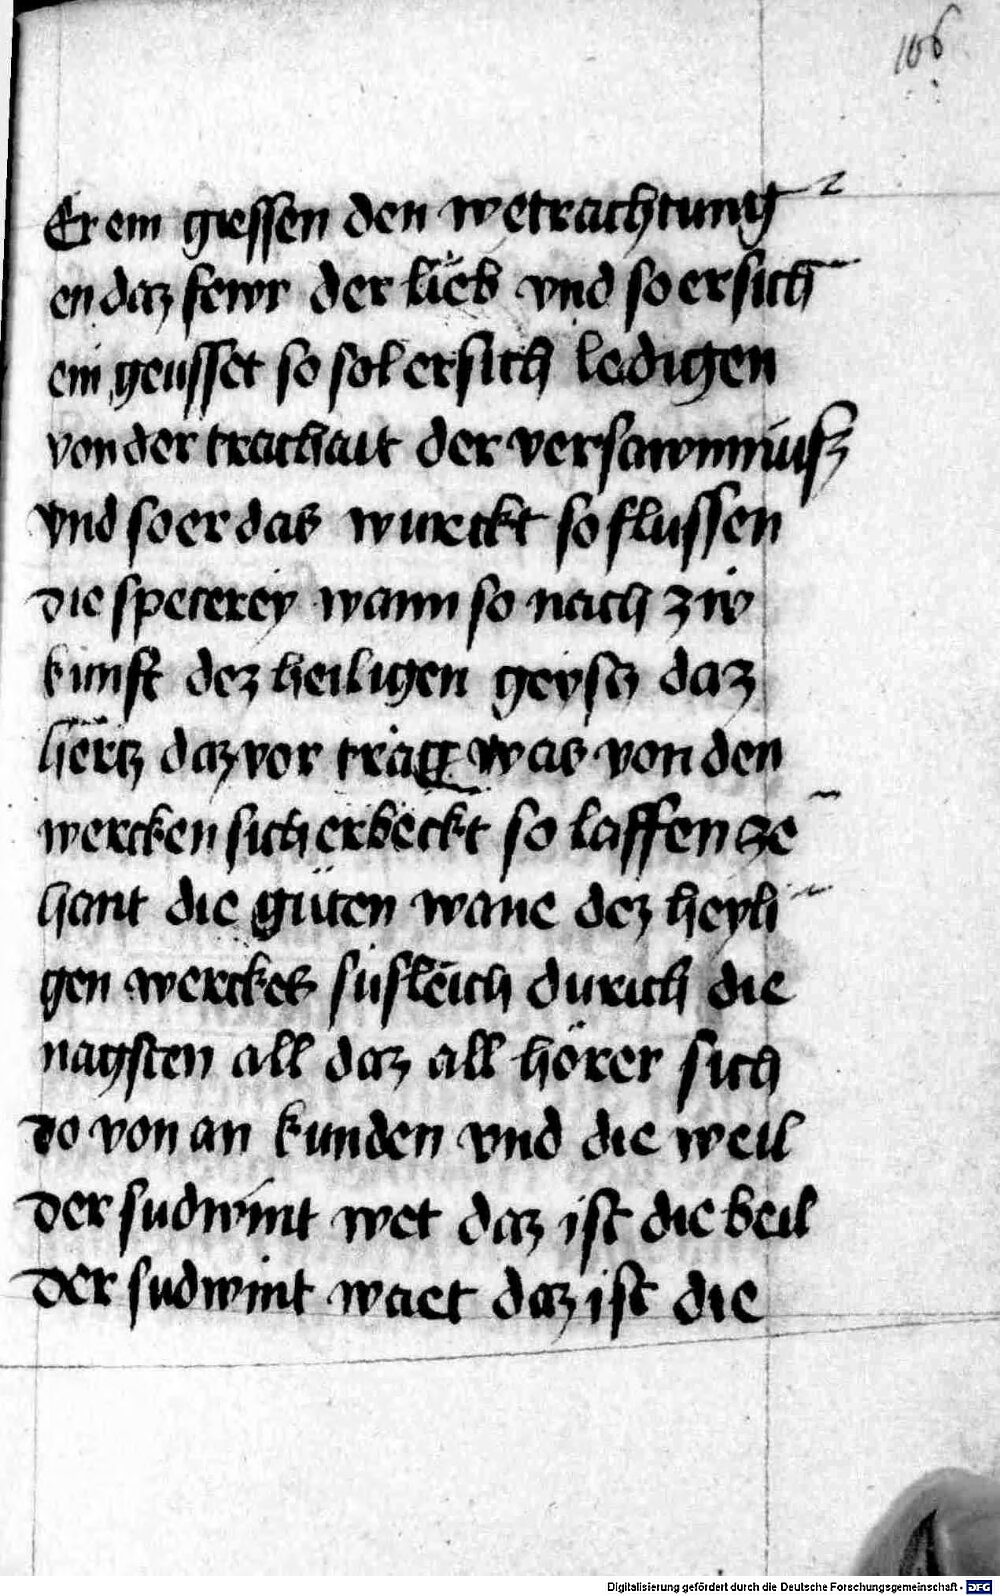 106
Er ein giessen den wetrachtung
en daz fewr der lieb vnd so er sich
ein geusset so sol er sich ledigen
von der trachait der versawmnusz
vnd so er das wurckt so flussen
die specerey wann so nach zw
kunft dez heiligen geystz daz
hertz daz vor trag was von den
wercken sich erbeckt so laffen ze
hant die güten wane dez heyli
gen werckes susleich durich die
nagsten all daz all hörer sich
do von an kunden vnd die weil
der sudwint wet daz ist die beil
der sudwint waet daz ist die
Digitalisierung gefördert durch die Deutsche Forschungsgemeinschaft - DFG